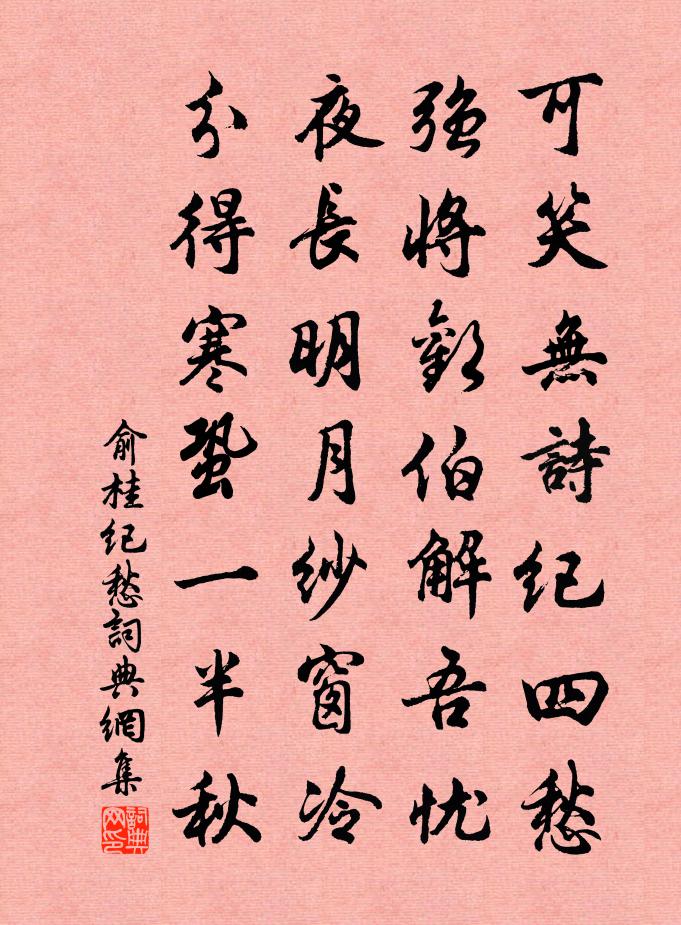 可笑無詩紀四愁
强將歡伯解吾忧
夜長明月紗窗冷
分得寒蛩一半秋
俞桂紀愁詞典網集
詞典网印